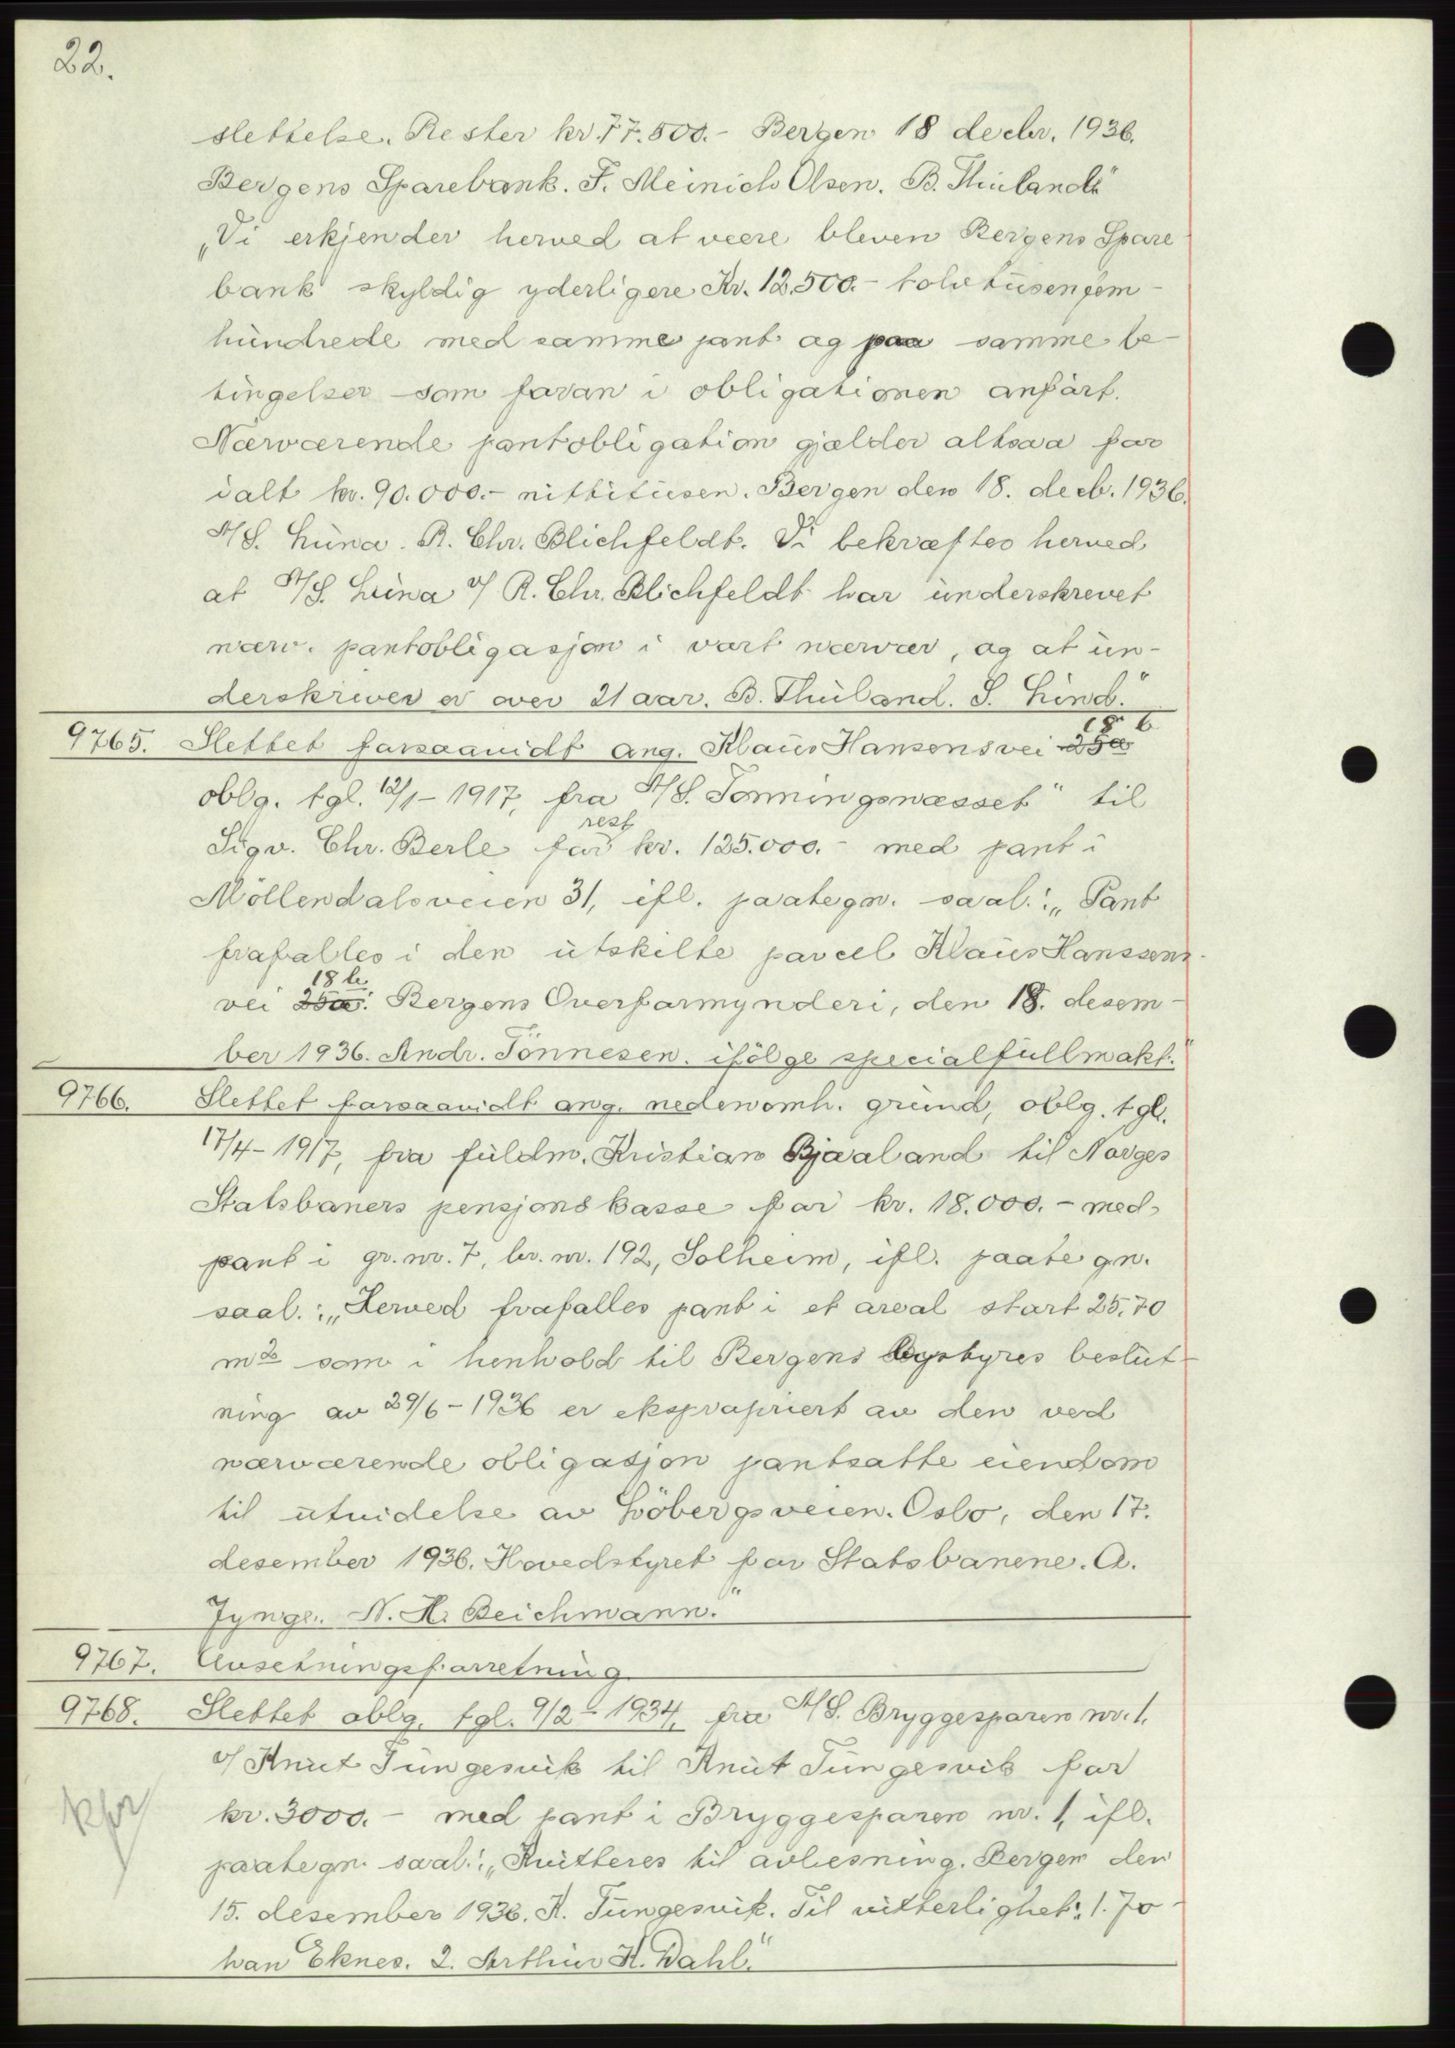 22.
slettelse. Rester kr. 77.500.- Bergen 18 decbr. 1936.
Bergens Sparebank. F. Meinich Olsen. B. Thuland."
„Vi erkjender herved at være bleven Bergens Spare-
bank skyldig yderligere Kr. 12.500.- tolvtusenfem-
hundrede med samme pant og paa samme be-
tingelser som foran i obligationen anført.
Nærværende pantobligation gjælder altsaa for
ialt kr. 90.000.- nittitusen. Bergen den 18. decb. 1936.
A/S. Luna. R. Chr. Blichfeldt. Vi bekræfter herved
at A/S. Luna v/ R. Chr. Blichfeldt har underskrevet
nærv. pantobligasjon i vort nærvær, og at un-
derskriver er over 21 aar. B. Thuland. S. Lind."
9765. Slettet forsaavidt ang. Klaus Hansens vei 25a 18 b
oblg. tgl. 12/1-1917, fra A/S. Tonningsnæsset" til
Sigv. Chr. Berle for rest kr. 125.000.- med pant i
Möllendalsveien 31, ifl. paategn. saal.: „Pant
frafalles i den utskilte parcel Klaus Hanssens
vei 25a 18 b. Bergens Overformynderi, den 18. desem-
ber 1936. Andr. Tönnesen. ifölge specialfullmakt."
9766. Slettet forsaavidt ang. nedenomh. grund, oblg. tgl.
17/4-1917, fra fuldm. Kristian Bjaaland til Norges
Statsbaners pensjonskasse for kr. 18.000.- med
pant i gr. nr. 7, br. nr. 192, Solheim, ifl. paategn.
saal.: „Herved frafalles pant i et areal stort 25,70
m2 som i henhold til Bergens bystyres beslut-
ning av 29/6-1936 er ekspropriert av den ved
nærværende obligasjon pantsatte eiendom
til utvidelse av Löbergsveien. Oslo, den 17.
desember 1936. Hovedstyret for Statsbanene. A.
Jynge. N. H. Beichmann."
9767. Utvsetningsforretning
9768. Slettet oblg. tgl. 9/2-1934, fra A/S. Bryggesporen nr. 1.
v/ Knut Tungesvik til Knut Tungesvik for
kr. 3000.- med pant i Bryggesporen nr. 1, ifl.
paategn. saal.: „Kvitteres til avlesning. Bergen den
15. desember 1936. K. Tungesvik. Til vitterlighet: 1. Jo-
han Eknes. 2. Arthur K. Dahl."